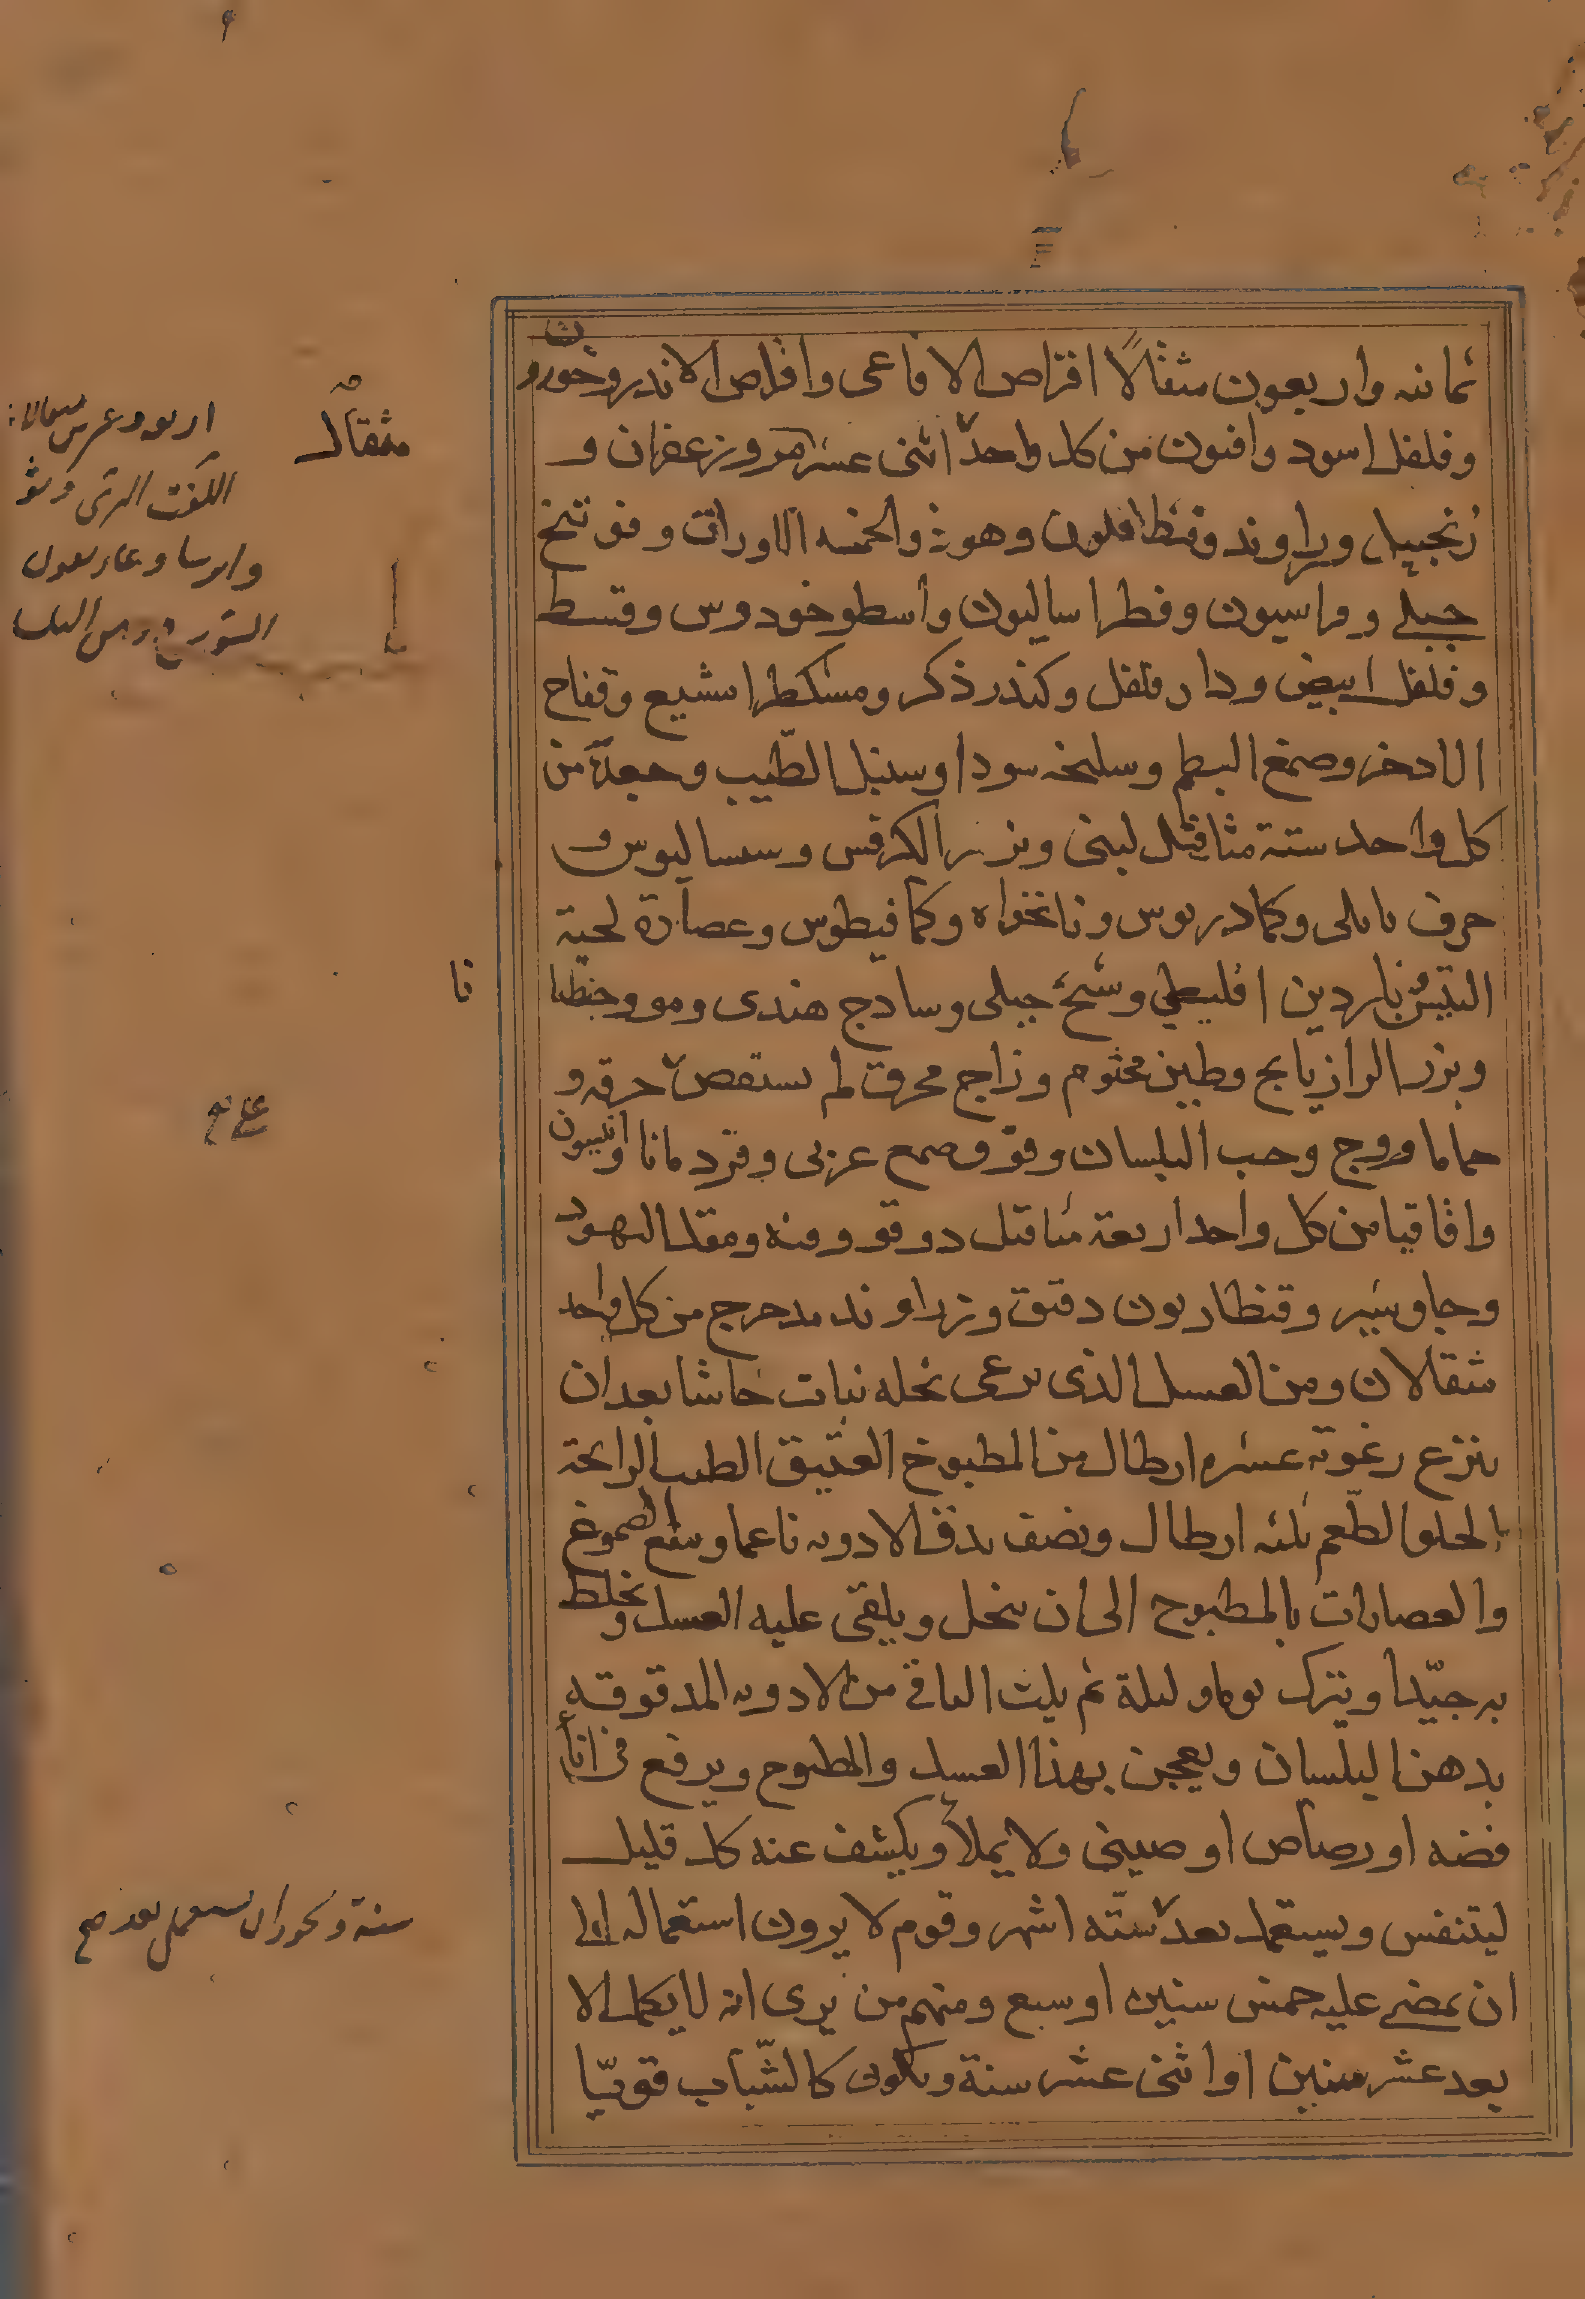 ثمانيه واربعون مثقالًا اقراص الافاعى واقراص الاندروخورون و
وفلفل اسود وافيون من كل واحد اثنى عشر مر وزعفران و
زنجبيل وراوند وقنطافلون وهو ذو الخمسه الاوراق وفوتنخ
جبلى وفراسيون وفطراساليون واسطوخودوس وقسط
وفلفل ابيض ودارفلفل وكندر ذكر ومشكطرامشيع وفقاح
الادخر وصمغ البطم وسليخه سودا وسنبل الطّيب وجعدة من
كل واحد ستة مثاقيل لبنى وبزر الكرفس وسساليوس و
حرف بابلى وكمادريوس ونانخواه وكمافيطوس وعصارة لحية
التيس ناردين اقليطي وشيح جبلى وسادج هندى ومو وجنطيا
وبزر الرازيانج وطين مختوم وزاج محرق لم يستقص حرقه و
حماما ووج وحب البلسان وفو وصمع عربى وقردمانا وانيسون
واقاقيا من كل واحد اربعة مثاقيل دوقو وقنه ومقل اليهود
وجاوشير وقنطاريون دقيق وزراوند مدحرج من كل واحد
مثقالان ومن العسل الذى يرعى نحله نبات حاشا بعد ان
ينزع رغوته عشره ارطال من المطبوخ العتيق الطيب الرايحة
الحلو الطّعم ثلثه ارطال ونصف يدق الادويه ناعما وينقع الصموغ
والعصارات بالمطبوح الى ان ينحل ويلقى عليه العسل ويخلط
به جيّدا ويترك يوما وليلة ثم يلت الباقى من الادويه المدقوقه
بدهن البلسان ويعجن بهذا العسل والمطبوح ويرفع فى اناء
فضه او رصاص او صينى ولا يملأ ويكشف عنه كل قليل
ليتنفس ويستعمل بعد ستّه اشهر وقوم لا يرون استعماله الى
ان يمضى عليه خمس سنين او سبع ومنهم من يرى انه لا يكمل الا
بعد عشر سنين او اثنى عشر سنة ويكون كالشّباب قويّا
مثقال
نا
سنة ويجوز ان يستعمل بعد صح